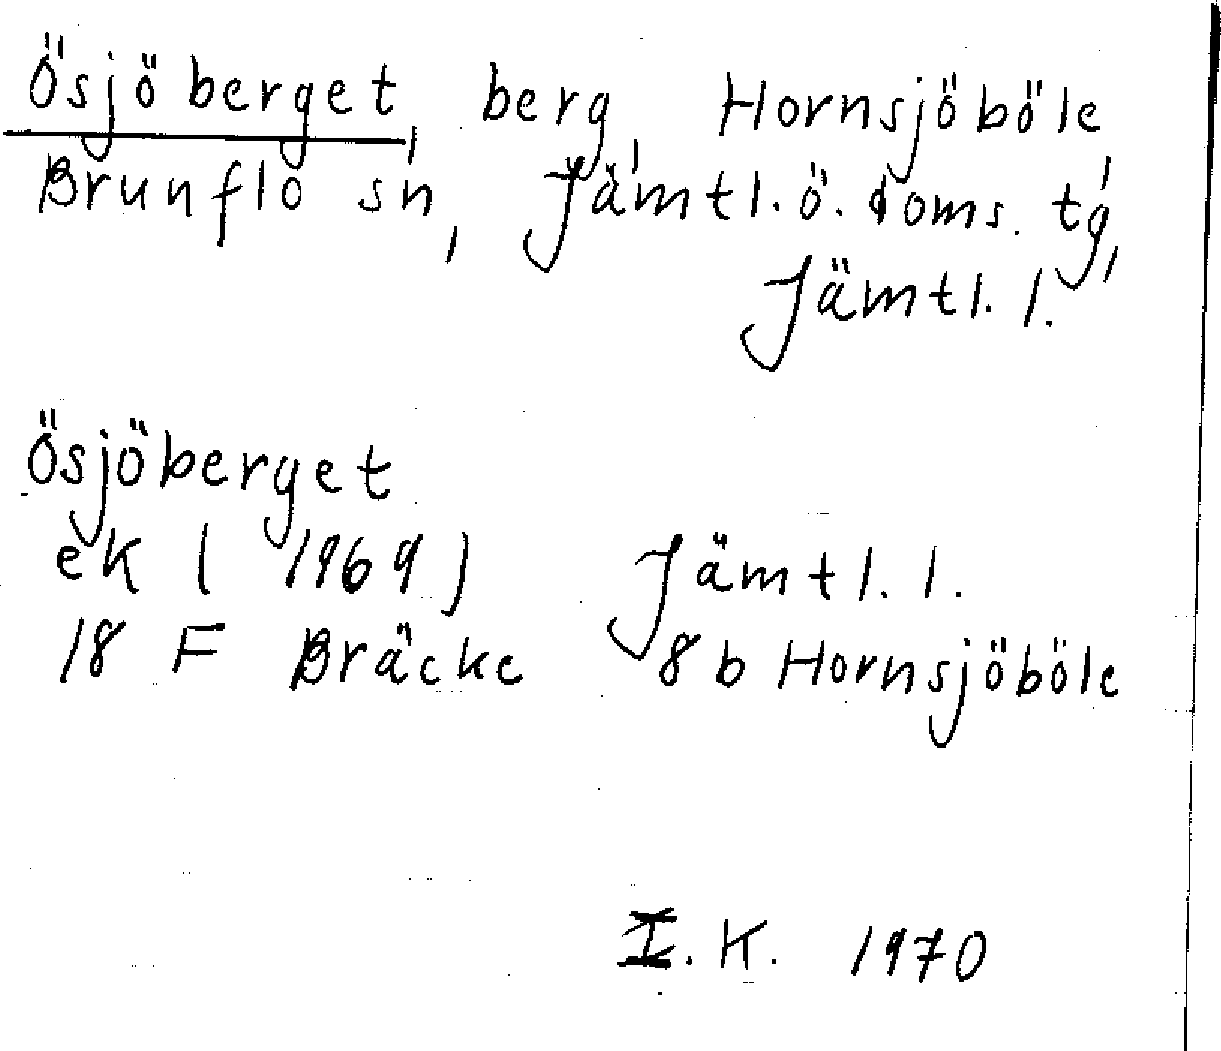 Ösjöberget, berg, Hornsjöböle,
Brunflo sn, Jämtl. ö. doms. tg,
Jämtl. l.
Ösjöberget
ek (1969) Jämtl. l.
18 F Bräcke 8 b Hornsjöböle
I. K. 1970